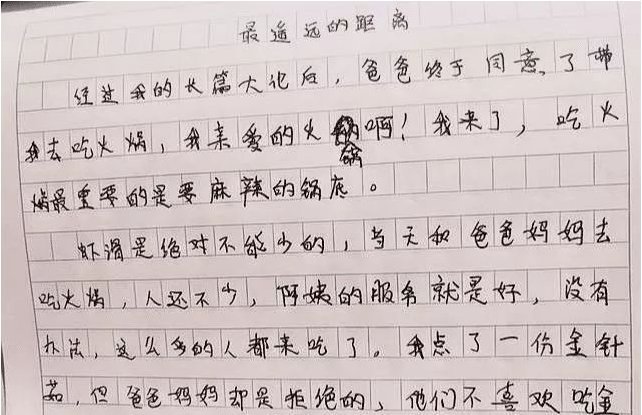 最遥远的距离
经过我的长篇大论后，爸爸终于同意了带
我去吃火锅，我亲爱的火锅啊！我来了，吃火
锅最重要的是要麻辣的锅底。
虾滑是绝对不能少的，当天和爸爸妈妈去
吃火锅，人还不少，阿姨的服务就是好，没有
办法，这么多的人都来吃了。我点了一份金针
菇，但爸爸妈妈却是拒绝的，他们不喜欢吃金